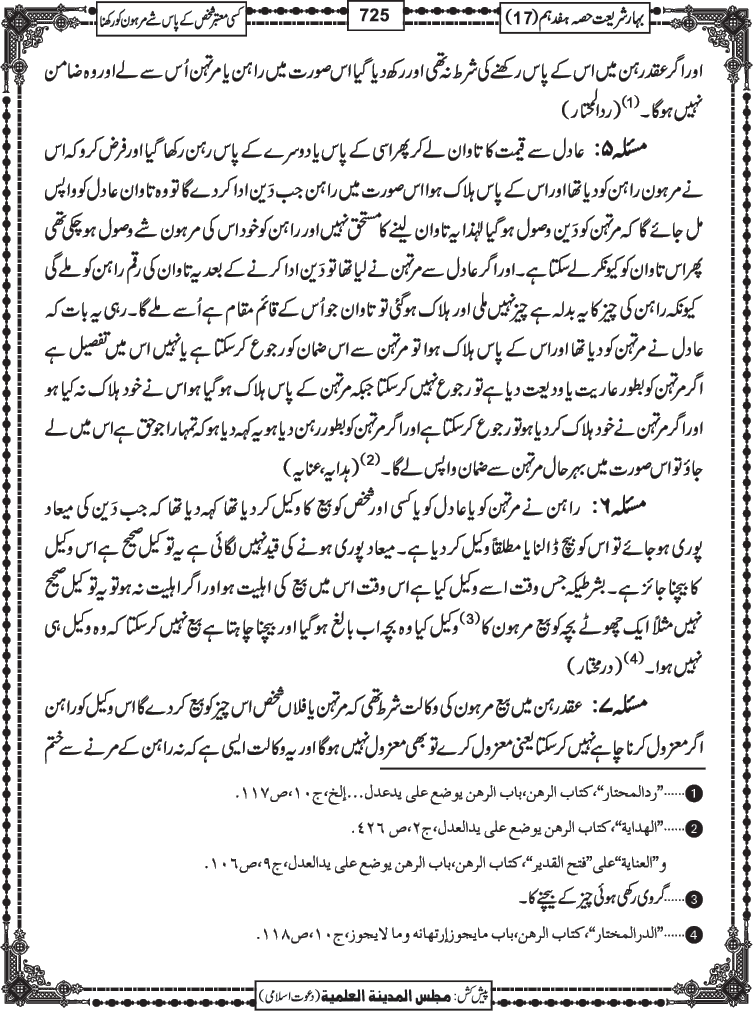 بہارِ شریعت حصہ ہفدہم (17)
725
کسی معتبر شخص کے پاس شے مرہون کو رکھنا
اور اگر عقد رہن میں اس کے پاس رکھنے کی شرط نہ تھی اور رکھ دیا گیا اس صورت میں راہن یا مرتہن اُس سے لے اور وہ ضامن
نہیں ہوگا۔(1) (ردالمحتار)
مسئلہ ۵: عادل سے قیمت کا تاوان لے کر پھر اسی کے پاس یا دوسرے کے پاس رہن رکھا گیا اور فرض کرو کہ اس
نے مرہون راہن کو دیا تھا اور اس کے پاس ہلاک ہوا اس صورت میں راہن جب دَین ادا کردے گا تو وہ تاوان عادل کو واپس
مل جائے گا کہ مرتہن کو دَین وصول ہوگیا لہٰذا یہ تاوان لینے کا مستحق نہیں اور راہن کو خود اس کی مرہون شے وصول ہو چکی تھی
پھر اس تاوان کو کیونکر لے سکتا ہے۔ اور اگر عادل سے مرتہن نے لیا تھا تو دَین ادا کرنے کے بعد یہ تاوان کی رقم راہن کو ملے گی
کیونکہ راہن کی چیز کا یہ بدلہ ہے چیز نہیں ملی اور ہلاک ہوگئی تو تاوان جو اُس کے قائم مقام ہے اُسے ملے گا۔ رہی یہ بات کہ
عادل نے مرتہن کو دیا تھا اور اس کے پاس ہلاک ہوا تو مرتہن سے اس ضمان کو رجوع کرسکتا ہے یا نہیں اس میں تفصیل ہے
اگر مرتہن کو بطور عاریت یا ودیعت دیا ہے تو رجوع نہیں کرسکتا جبکہ مرتہن کے پاس ہلاک ہوگیا ہو اس نے خود ہلاک نہ کیا ہو
اور اگر مرتہن نے خود ہلاک کردیا ہو تو رجوع کرسکتا ہے اور اگر مرتہن کو بطور رہن دیا ہو یہ کہہ دیا ہو کہ تمہارا جو حق ہے اس میں لے
جاؤ تو اس صورت میں بہرحال مرتہن سے ضمان واپس لے گا۔(2) (ہدایہ، عنایہ)
مسئلہ ۶: راہن نے مرتہن کو یا عادل کو یا کسی اور شخص کو بیع کا وکیل کردیا تھا کہہ دیا تھا کہ جب دَین کی میعاد
پوری ہوجائے تو اس کو بیچ ڈالنا یا مطلقاً وکیل کردیا ہے۔ میعاد پوری ہونے کی قید نہیں لگائی ہے یہ توکیل صحیح ہے اس وکیل
کا بیچنا جائز ہے۔ بشرطیکہ جس وقت اسے وکیل کیا ہے اس وقت اس میں بیع کی اہلیت ہو اور اگر اہلیت نہ ہو تو یہ توکیل صحیح
نہیں مثلاً ایک چھوٹے بچہ کو بیع مرہون کا(3) وکیل کیا وہ بچہ اب بالغ ہوگیا اور بیچنا چاہتا ہے بیع نہیں کرسکتا کہ وہ وکیل ہی
نہیں ہوا۔(4) (درمختار)
مسئلہ ۷: عقد رہن میں بیع مرہون کی وکالت شرط تھی کہ مرتہن یا فلاں شخص اس چیز کو بیع کردے گا اس وکیل کو راہن
اگر معزول کرنا چاہے نہیں کرسکتا یعنی معزول کرے تو بھی معزول نہیں ہوگا اور یہ وکالت ایسی ہے کہ نہ راہن کے مرنے سے ختم
1 ......"ردالمحتار"،کتاب الرھن،باب الرھن یوضع علی یدعدل...إلخ،ج۱۰،ص۱۱۷.
2 ......"الھدایۃ"،کتاب الرھن،باب الرھن یوضع علی یدالعدل،ج۲،ص ٤٢٦.
و"العنایۃ"علی"فتح القدیر"،کتاب الرھن،باب الرھن یوضع علی یدالعدل،ج۹،ص۱۰٦.
3 ......گروی رکھی ہوئی چیز کے بیچنے کا۔
4 ......"الدرالمختار"،کتاب الرھن،باب مایجوزإرتھانہ وما لایجوز،ج۱۰،ص۱۱۸.
پیش کش: مجلس المدینۃ العلمیۃ (دعوت اسلامی)